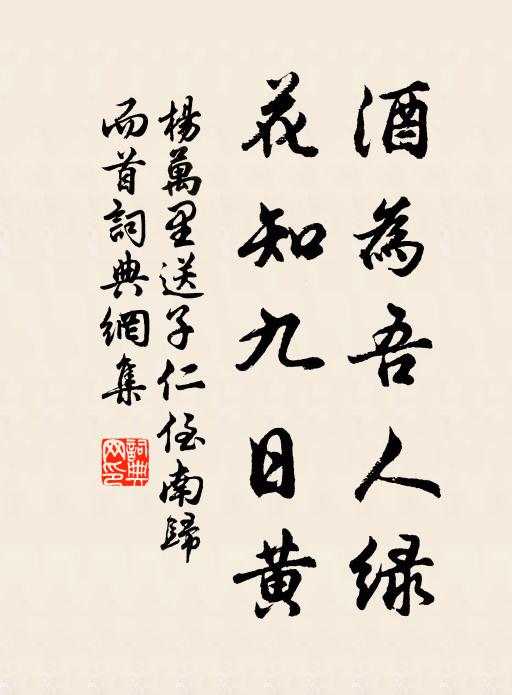 酒為吾人緑
花知九日黄
楊萬里送子仁侄南歸
而首詞典網集
詞典
网印